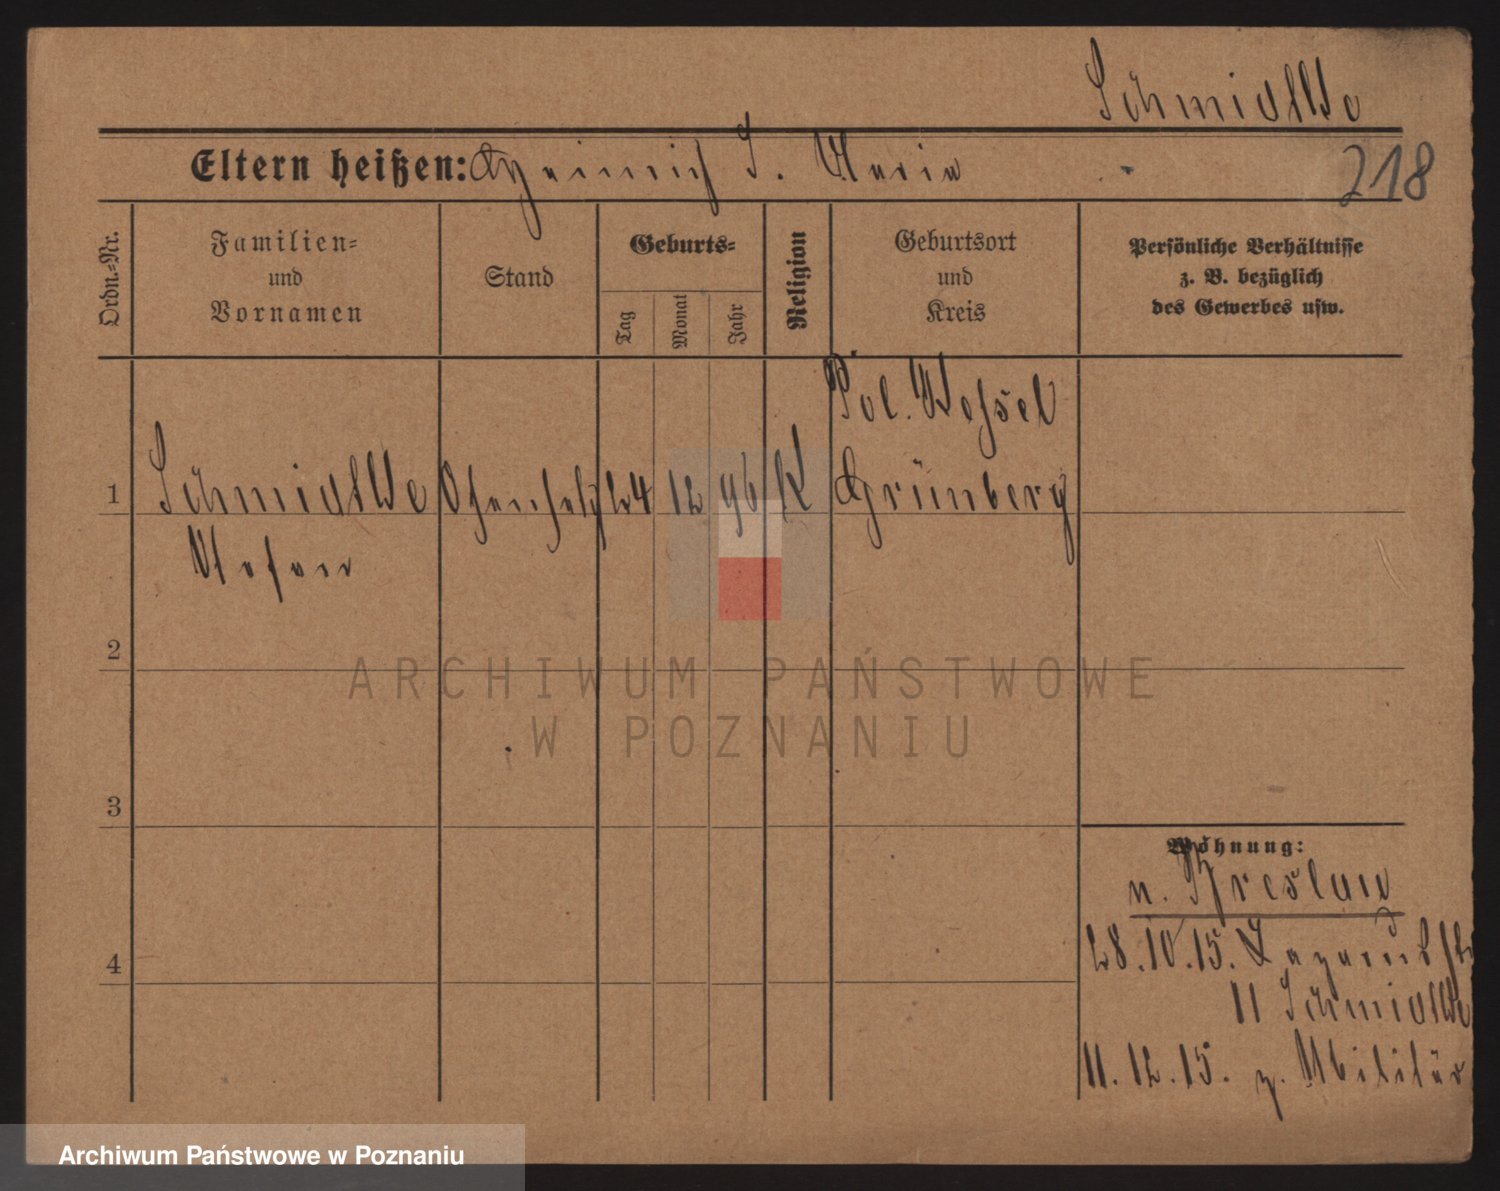 Schmidtke
Eltern heißen: Heinrich S. Maria
218
Ordn.-Nr.
Familien-
und
Vornamen
Stand
Geburts-
Tag
Monat
Jahr
Religion
Geburtsort
und
Kreis
Persönliche Verhältnisse
z. B. bezüglich
des Gewerbes usw.
Pol. Wessel
1 Schmidtke 24 12 96 K Grünberg
2
3
4
Wohnung:
n. Breslau
28.10.15. Lazarusstr
11 Schmidtke
11.12.15. z. Militär
ARCHIWUM PAŃSTWOWE
W POZNANIU
Archiwum Państwowe w Poznaniu